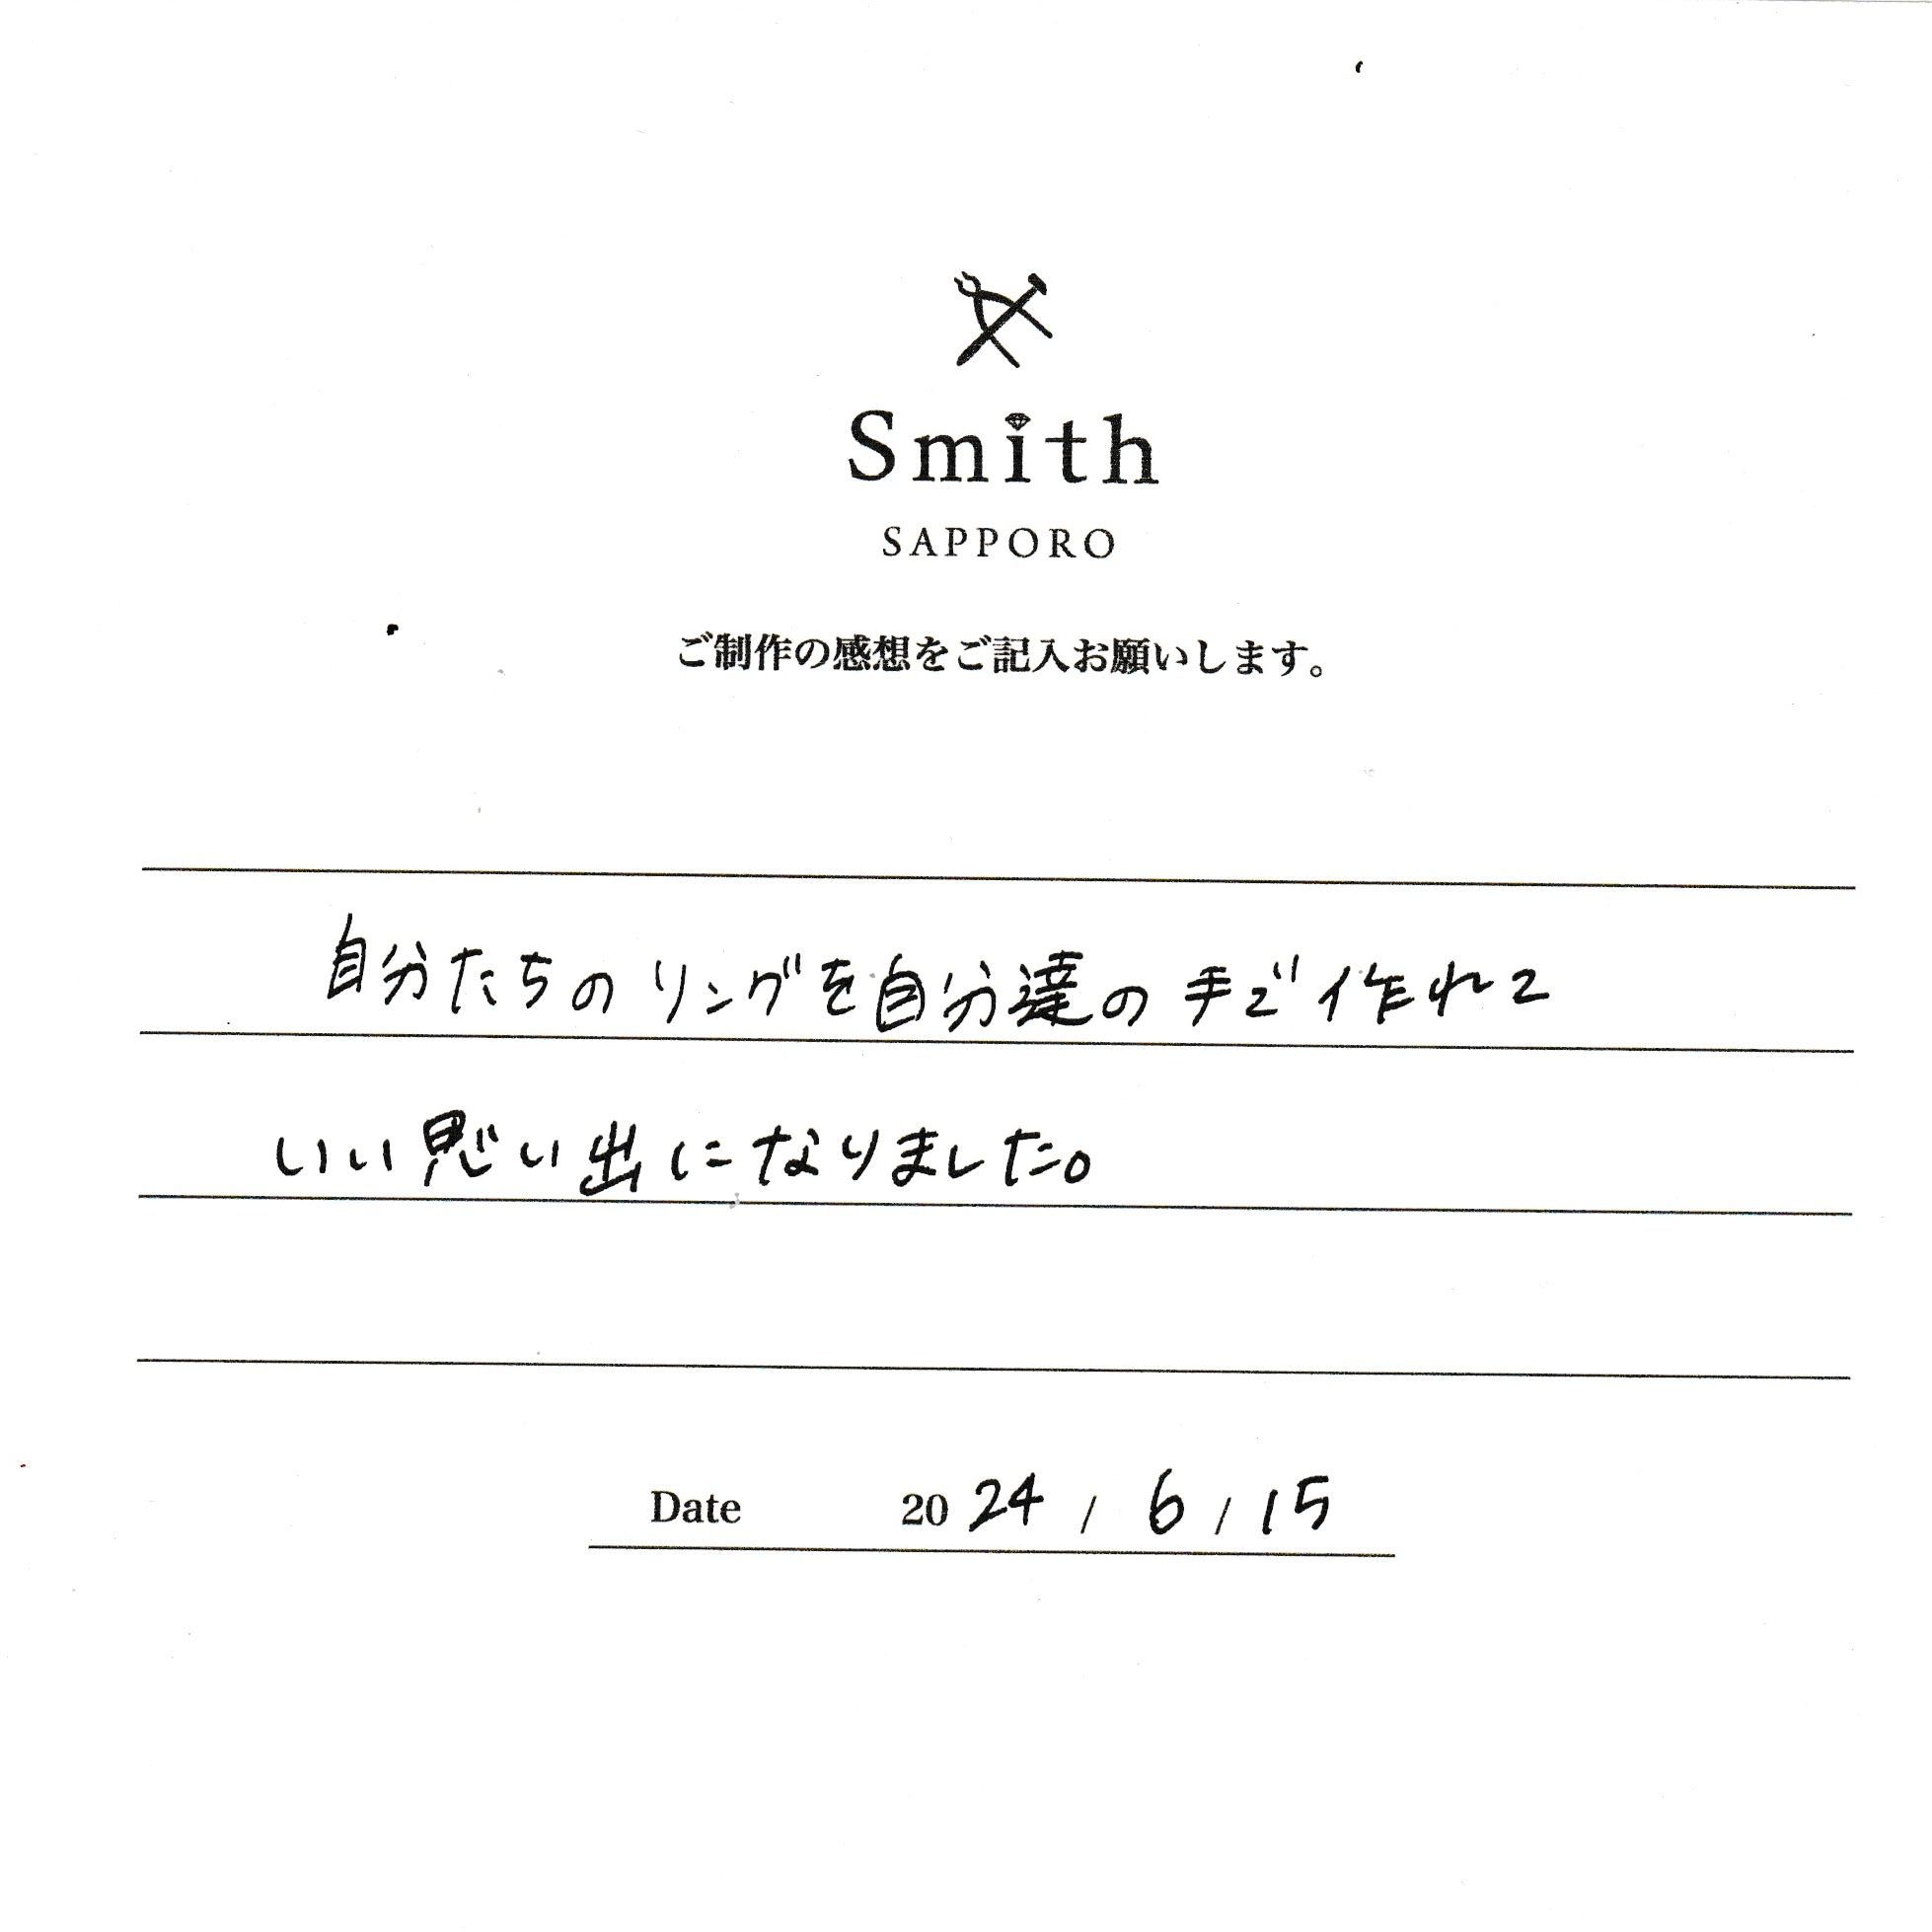 Smith
SAPPORO
ご制作の感想をご記入お願いします。
自分たちのリングを自分達の手で作れて
いい思い出になりました。
Date 2024 / 6 / 15